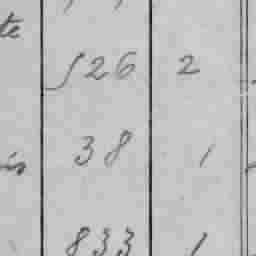 te
526 2
38 1
833 1